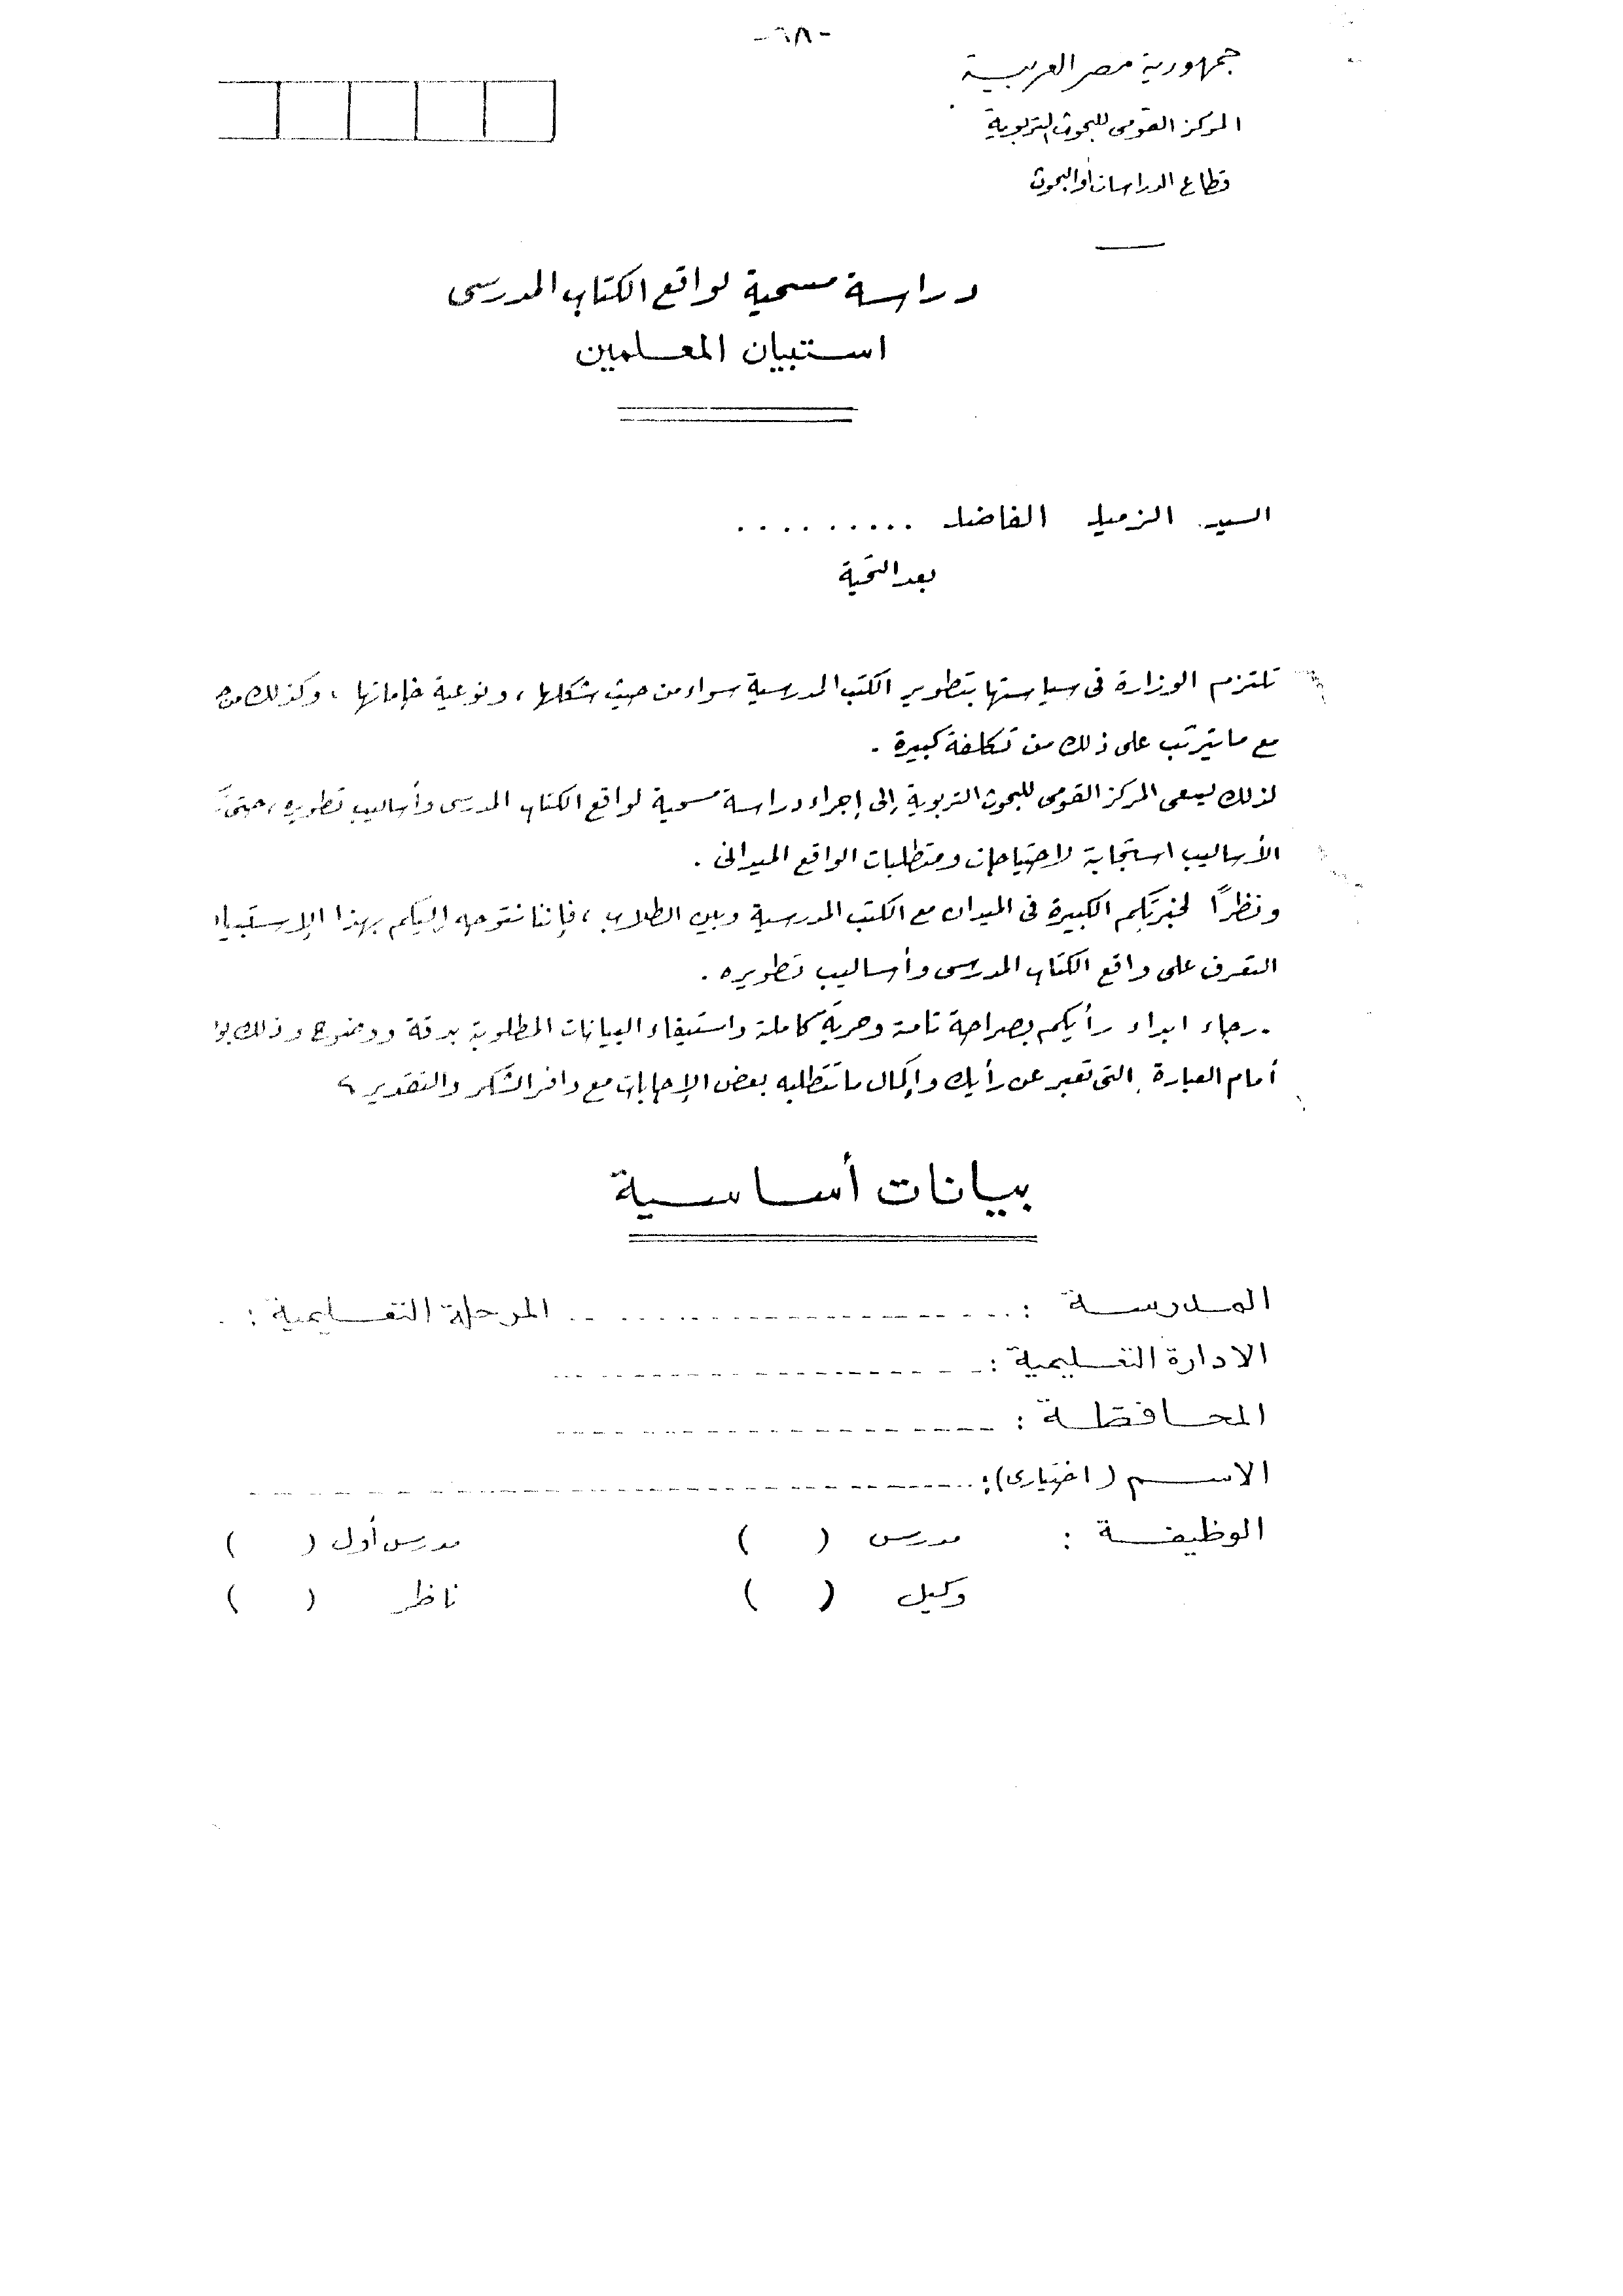 -٦٨-
جمهورية مصر العربية
المركز القومى للبحوث التربوية
قطاع الدراسات والبحوث
دراسة مسحية لواقع الكتاب المدرسى
استبيان المعلمين
السيد الزميل الفاضل .........
بعد التحية
تلتزم الوزارة فى سياستها بتطوير الكتب المدرسية سواء من حيث شكلها ، ونوعية خاماتها ، وكذلك من
مع ما يترتب على ذلك من تكلفة كبيرة .
لذلك يسعى المركز القومى للبحوث التربوية إلى إجراء دراسة مسحية لواقع الكتاب المدرسى وأساليب تطويره ، حتى
الأساليب استجابة لاحتياجات ومتطلبات الواقع الميدانى .
ونظراً لخبرتكم الكبيرة فى الميدان مع الكتب المدرسية وبين الطلاب ، فإننا نتوجه إليكم بهذا الإستبيا
التعرف على واقع الكتاب المدرسى وأساليب تطويره .
. رجاء ابداء رأيكم بصراحة تامة وحرية كاملة واستيفاء البيانات المطلوبة بدقة ووضوح وذلك بو
أمام العبارة التى تعبر عن رأيك وإكمال ما تتطلبه بعض الإجابات مع وافر الشكر والتقدير ،
بيانات أساسية
المدرسة : .................... المرحلة التعليمية : .
الادارة التعليمية : ....................
المحافظة : ....................
الاسم (اختيارى) : ....................
الوظيفة : مدرس ( ) مدرس أول ( )
وكيل ( ) ناظر ( )